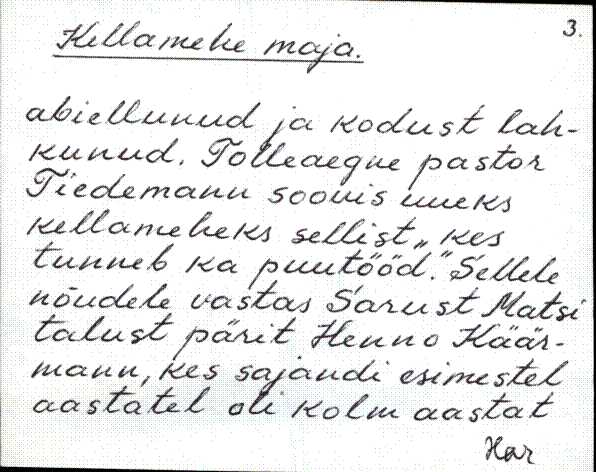 3.
Kellamehe maja.
abiellunud ja kodust lah-
kunud. Tolleaegne pastor
Tiedemann soovis uueks
kellameheks sellist „kes
tunneb ka puutööd.“ Sellele
nõudele vastas Sarust Matsi
talust pärit Henno Käär-
mann, kes sajandi esimestel
aastatel oli kolm aastat
Har